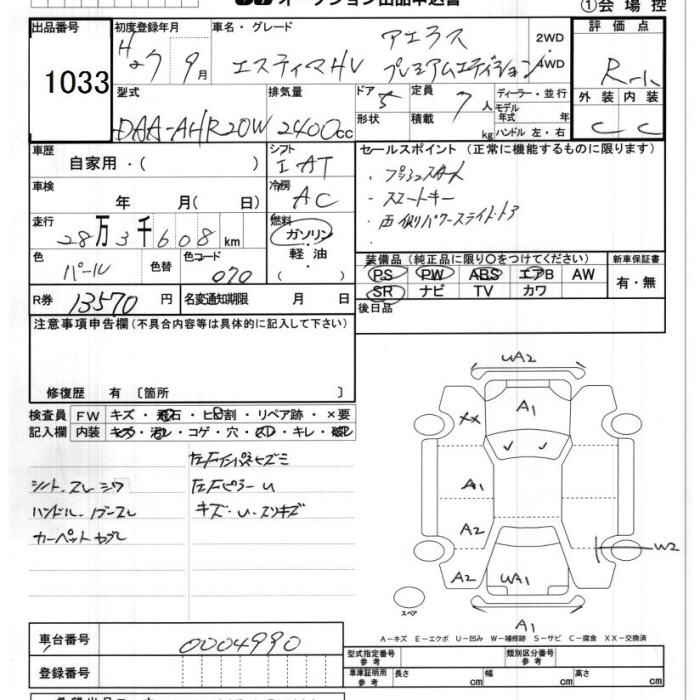 オークション出品申込書 ①会場控
出品番号 初度登録年月 車名・グレード 評価点
1033 H27 9月 エスティマHV アエラス プレミアムエディション 2WD 4WD R-1
型式 排気量 ドア 5 定員 7人 ディーラー・並行 外装 内装
DAA-AHR20W 2400cc 形状 積載 kg モデル年式 年 ハンドル 左・右 C C
車歴 自家用・( ) シフト IAT セールスポイント (正常に機能するものに限ります)
・プッシュスタート
車検 年 月( 日) 冷房 AC ・スマートキー
・両側パワースライドドア
走行 28万3千608km 燃料 ガソリン・軽油・( )
色 パール 色替 色コード 070 装備品 (純正品に限り○をつけてください) 新車保証書
PS PW ABS エアB AW 有・無
SR ナビ TV カワ
R券 13570円 名変通知期限 月 日 後日品
注意事項申告欄 (不具合内容等は具体的に記入して下さい)
修復歴 有 〔箇所 〕
検査員 FW キズ・飛石・ヒビ割・リペア跡・×要
記入欄 内装 キズ・汚レ・コゲ・穴・スレ・キレ・破レ
左Fインパネヒズミ
シート スレ シワ 左Fピラー U
ハンドル・ノブ スレ キズ・U・スリキズ
カーペット ヤブレ
UA2
A1
XX
A1
A2
W2
A2 UA1
スペア
A1
A-キズ E-エクボ U-凹み W-補修跡 S-サビ C-腐食 XX-交換済
車台番号 0004990 型式指定番号 参考 類別区分番号 参考
登録番号 車庫証明用 参考 長さ cm 幅 cm 高さ cm